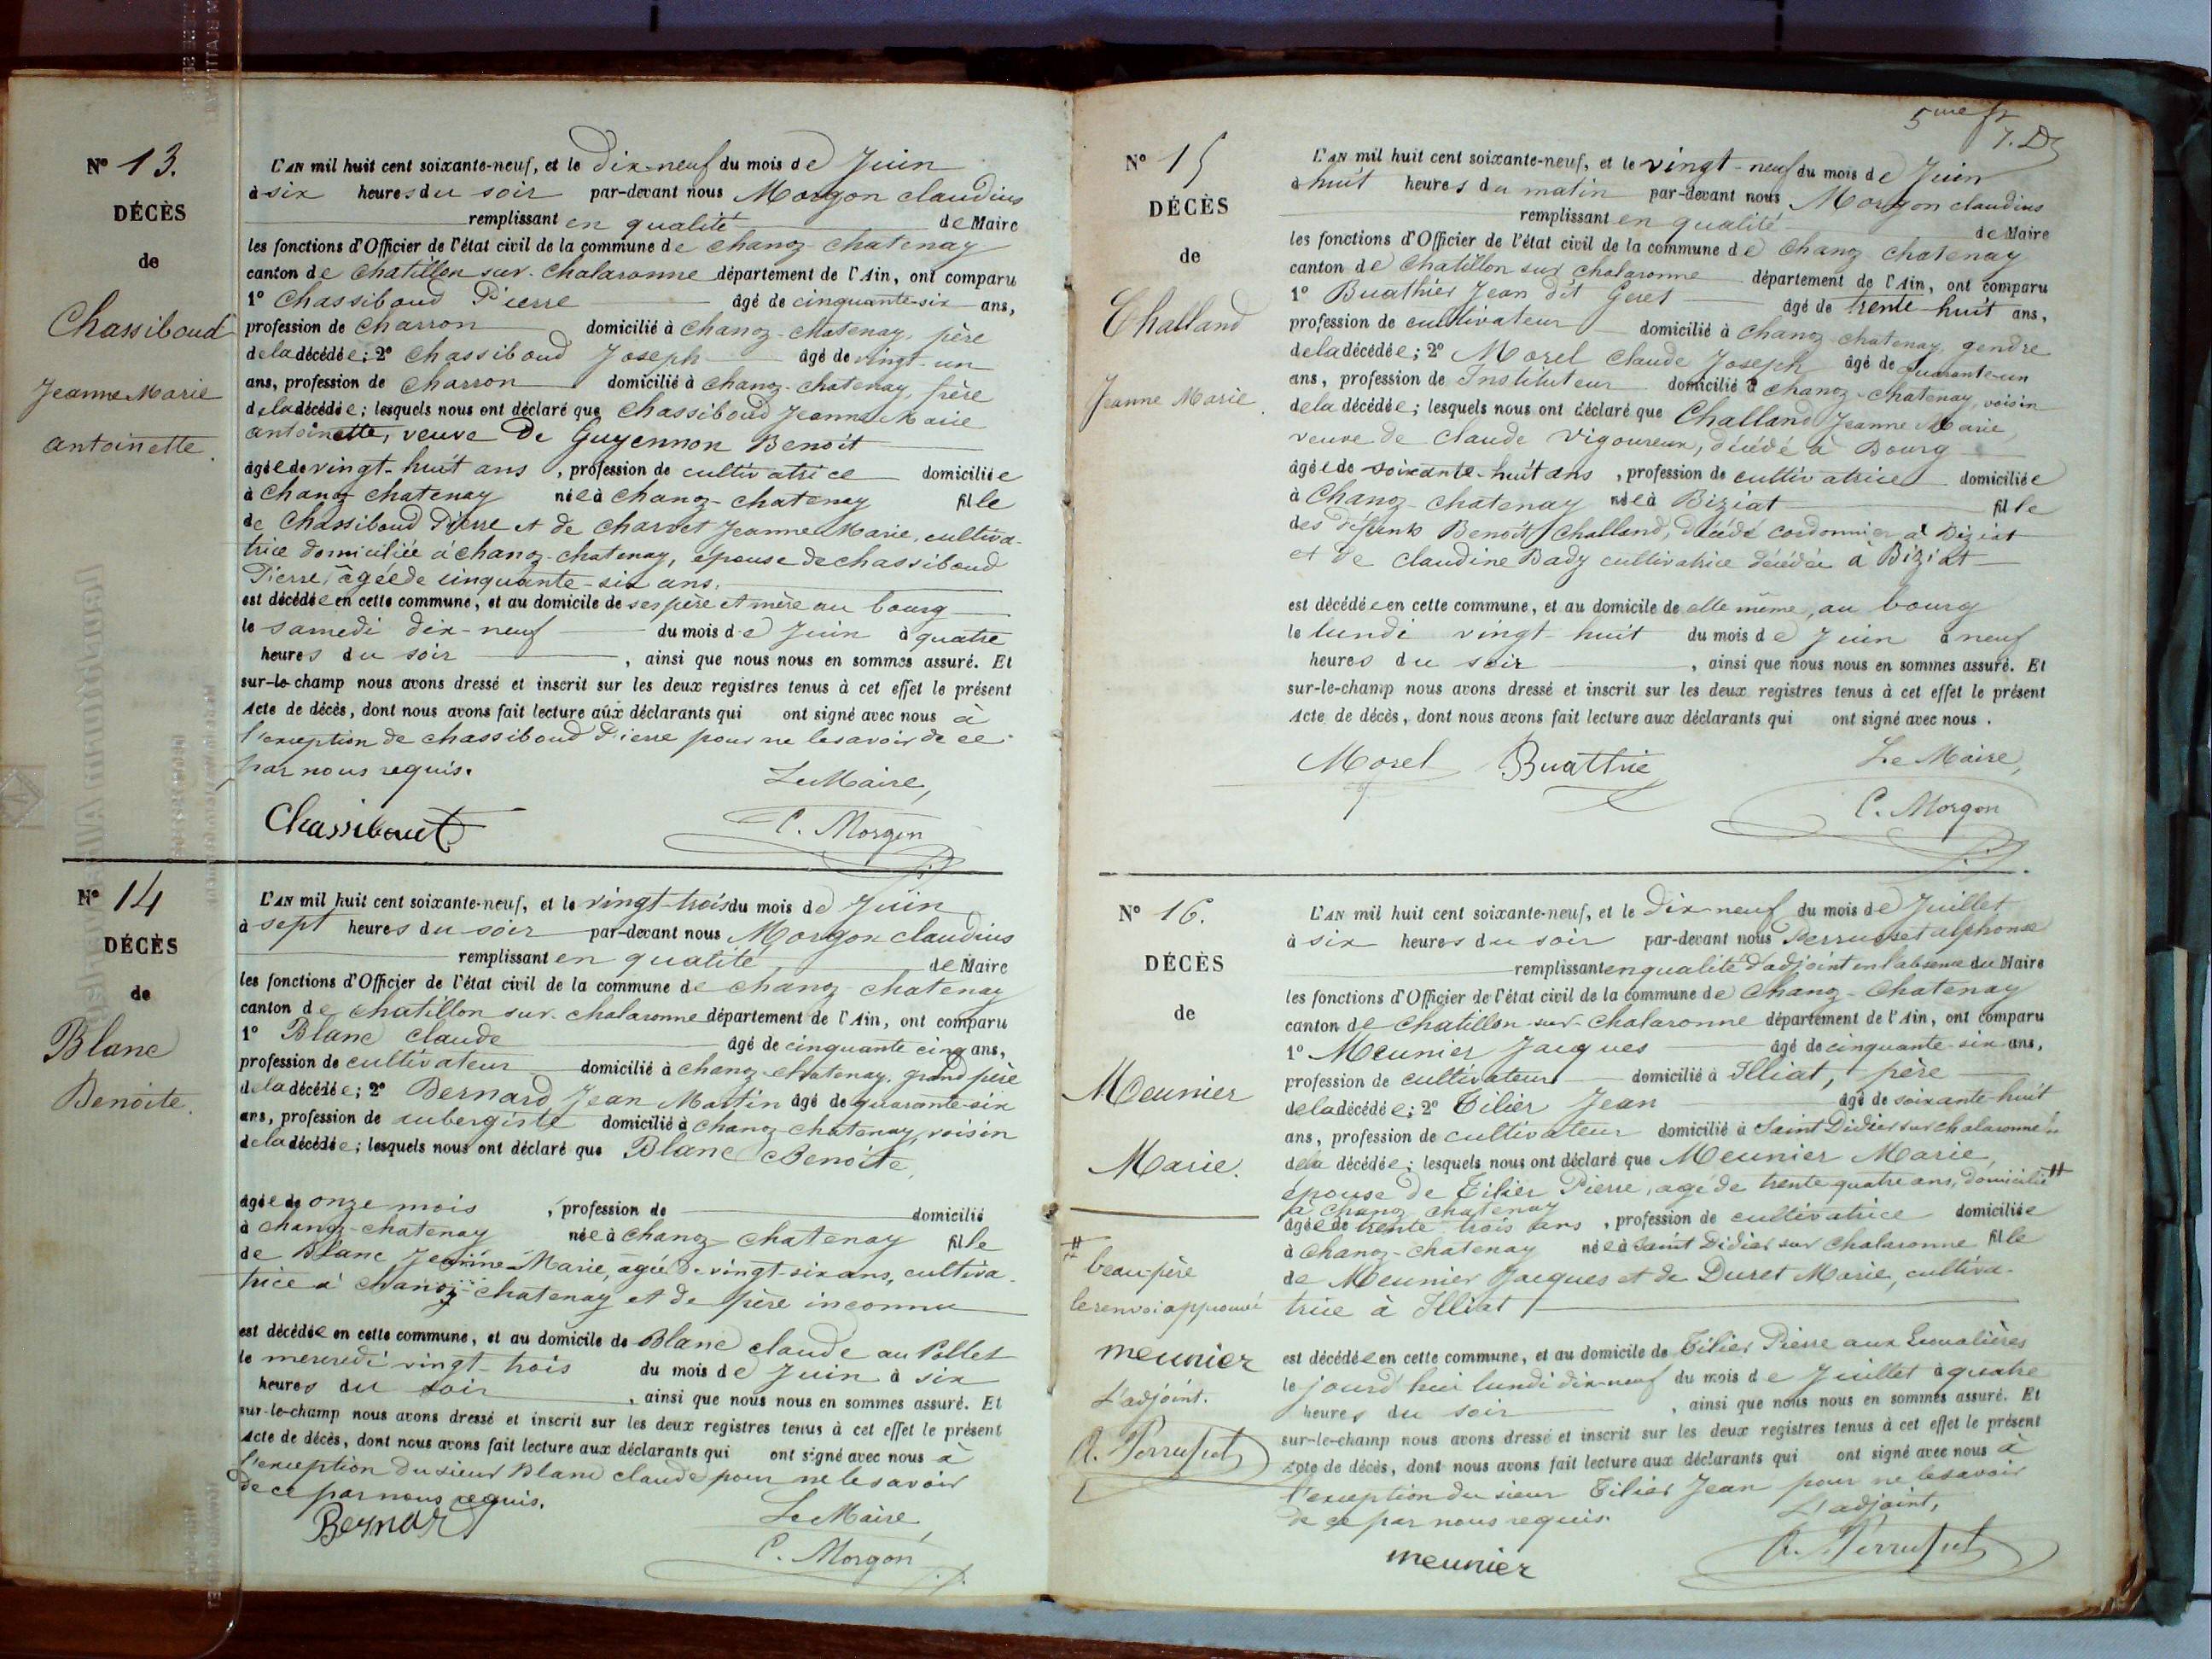 N° 13.
DÉCÈS
de
Chassiboud
Jeanne Marie
antoinette.
L'AN mil huit cent soixante-neuf, et le Dix-neuf du mois de Juin
à six heures du soir par-devant nous Morgon claudius
remplissant en qualité de Maire
les fonctions d'Officier de l'état civil de la commune de chanoz chatenay
canton de chatillon sur-chalaronne département de l'Ain, ont comparu
1° Chassiboud Pierre âgé de cinquante-six ans,
profession de charron domicilié à chanoz-chatenay, père
de la décédée; 2° chassiboud Joseph âgé de vingt-un
ans, profession de charron domicilié à chanoz-chatenay, frère
de la décédée; lesquels nous ont déclaré que chassiboud Jeanne Marie
antoinette, veuve De Guyennon Benoit
âgée de vingt-huit ans, profession de cultivatrice domiciliée
à chanoz chatenay née à chanoz-chatenay fille
de Chassiboud Pierre et de charvet Jeanne Marie, cultiva-
trice domiciliée à chanoz-chatenay, épouse de chassiboud
Pierre, âgée de cinquante-six ans.
est décédée en cette commune, et au domicile de ses père et mère au bourg
le samedi dix-neuf du mois de Juin à quatre
heures du soir, ainsi que nous nous en sommes assuré. Et
sur-le-champ nous avons dressé et inscrit sur les deux registres tenus à cet effet le présent
Acte de décès, dont nous avons fait lecture aux déclarants qui ont signé avec nous à
l'exception de chassiboud Pierre pour ne le savoir de ce
par nous requis.
Le Maire,
Chassiboud
C. Morgon
N° 14
DÉCÈS
de
Blanc
Benoite.
L'AN mil huit cent soixante-neuf, et le vingt-trois du mois de Juin
à sept heures du soir par-devant nous Morgon claudius
remplissant en qualité de Maire
les fonctions d'Officier de l'état civil de la commune de chanoz chatenay
canton de chatillon sur-chalaronne département de l'Ain, ont comparu
1° Blanc claude âgé de cinquante cinq ans,
profession de cultivateur domicilié à chanoz-chatenay, grand père
de la décédée; 2° Bernard Jean Martin âgé de quarante-six
ans, profession de aubergiste domicilié à chanoz-chatenay, voisin
de la décédée; lesquels nous ont déclaré que Blanc Benoite,
âgée de onze mois, profession de domicilié
à chanoz-chatenay née à chanoz-chatenay fille
de Blanc Jeanne-Marie, agée de vingt-six ans, cultiva-
trice à chanoz-chatenay et de père inconnu
est décédée en cette commune, et au domicile de Blanc claude au Pollet
le mercredi vingt-trois du mois de Juin à six
heures du soir, ainsi que nous nous en sommes assuré. Et
sur-le-champ nous avons dressé et inscrit sur les deux registres tenus à cet effet le présent
Acte de décès, dont nous avons fait lecture aux déclarants qui ont signé avec nous à
l'exception du sieur Blanc claude pour ne le savoir
de ce par nous requis.
Bernard
Le Maire,
C. Morgon
5me ft
N° 15
DÉCÈS
de
Challand
Jeanne Marie.
L'AN mil huit cent soixante-neuf, et le vingt-neuf du mois de Juin
à huit heures du matin par-devant nous Morgon claudius
remplissant en qualité de Maire
les fonctions d'Officier de l'état civil de la commune de chanoz chatenay
canton de chatillon sur chalaronne département de l'Ain, ont comparu
1° Buathier Jean dit Geret âgé de trente-huit ans,
profession de cultivateur domicilié à chanoz-chatenay, gendre
de la décédée; 2° Morel Claude Joseph âgé de quarante-un
ans, profession de Instituteur domicilié à chanoz-chatenay, voisin
de la décédée; lesquels nous ont déclaré que Challand Jeanne Marie,
veuve de claude Vigoureux, décédé à Bourg
âgée de soixante-huit ans, profession de cultivatrice domiciliée
à Chanoz-chatenay née à Biziat fille
des défunts Benoît Challand, décédé cordonnier à Biziat
et de claudine Bady cultivatrice décédée à Biziat
est décédée en cette commune, et au domicile de elle même, au bourg
le lundi vingt-huit du mois de Juin à neuf
heures du soir, ainsi que nous nous en sommes assuré. Et
sur-le-champ nous avons dressé et inscrit sur les deux registres tenus à cet effet le présent
Acte de décès, dont nous avons fait lecture aux déclarants qui ont signé avec nous.
Morel Buathie
Le Maire,
C. Morgon
N° 16.
DÉCÈS
de
Meunier
Marie.
L'AN mil huit cent soixante-neuf, et le Dix-neuf du mois de Juillet
à six heures du soir par-devant nous Perrusset alphonse
remplissant en qualité d'adjoint en l'absence du Maire
les fonctions d'Officier de l'état civil de la commune de Chanoz-Chatenay
canton de chatillon-sur-chalaronne département de l'Ain, ont comparu
1° Meunier Jacques âgé de cinquante-six ans,
profession de cultivateur domicilié à Illiat, père
de la décédée; 2° Tilier Jean âgé de soixante-huit
ans, profession de cultivateur domicilié à Saint Didier sur chalaronne #
de la décédée; lesquels nous ont déclaré que Meunier Marie,
épouse de Tilier Pierre, agé de trente quatre ans, domicilié #
à chanoz chatenay
âgée de trente trois ans, profession de cultivatrice domiciliée
à chanoz-chatenay née à Saint Didier sur chalaronne fille
de Meunier Jacques et de Duret Marie, cultiva-
trice à Illiat
est décédée en cette commune, et au domicile de Tilier Pierre aux
le jourd'hui lundi dix-neuf du mois de Juillet à quatre
heures du soir, ainsi que nous nous en sommes assuré. Et
sur-le-champ nous avons dressé et inscrit sur les deux registres tenus à cet effet le présent
Acte de décès, dont nous avons fait lecture aux déclarants qui ont signé avec nous à
l'exception du sieur Tilier Jean pour ne le savoir
de ce par nous requis.
L'adjoint,
meunier
A. Perrusset
#
beau-père
le renvoi approuvé
meunier
L'adjoint.
A. Perrusset